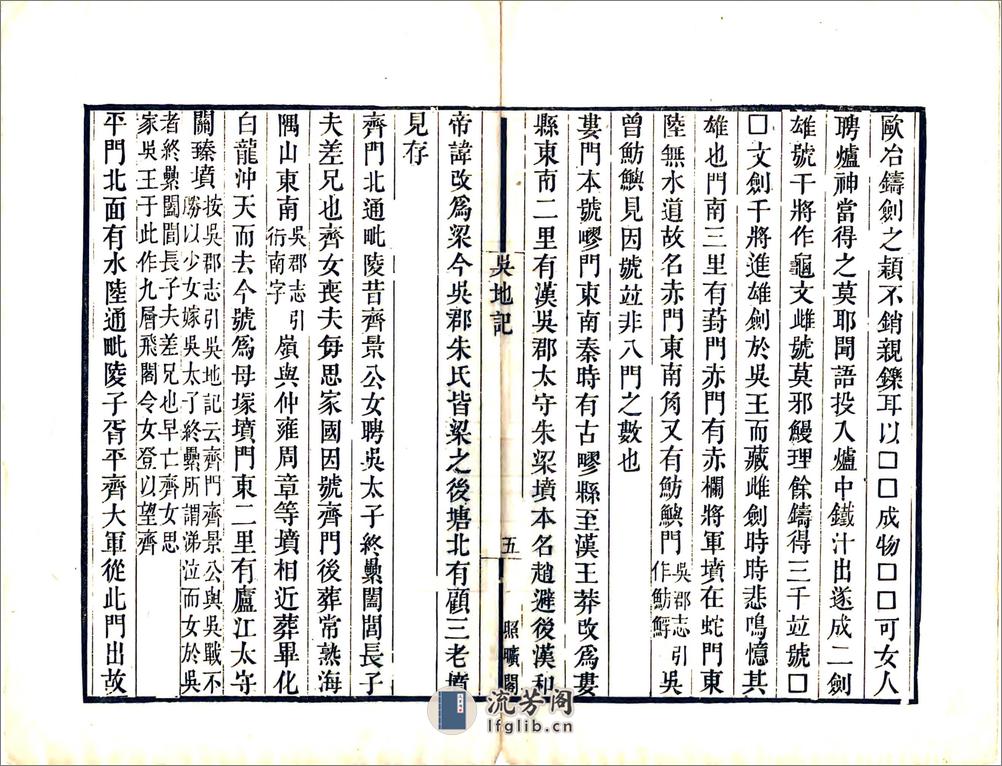 歐冶鑄劍之穎不銷親鑠耳以□□□成物□□□可女人
聘爐神當得之莫耶聞語投入爐中鐵汁出遂成二劍
雄號干將作龜文雌號莫邪鰻理餘鑄得三千竝號□
□文劍干將進雄劍於吳王而藏雌劍時時悲鳴憶其
雄也門南三里有葑門赤門有赤欄將軍墳在蛇門東
陸無水道故名赤門東南角又有魴鱮門吳郡志引作魴鱘吳
曾魴鱮見因號竝非八門之數也
婁門本號㽎門東南秦時有古㽎縣至漢王莽改爲婁
縣東南二里有漢吳郡太守朱梁墳本名趙避後漢和
吳地記
五
照曠閣
帝諱改爲梁今吳郡朱氏皆梁之後塘北有顧三老墳
見存
齊門北通毗陵昔齊景公女聘吳太子終纍闔閭長子
夫差兄也齊女喪夫每思家國因號齊門後葬常熟海
隅山東南吳郡志引衍南字嶺與仲雍周章等墳相近葬畢化
白龍沖天而去今號爲母塚墳門東二里有廬江太守
關臻墳按吳郡志引吳地記云齊門齊景公與吳戰不
勝以少女嫁吳太子終纍所謂涕泣而女於吳
者終纍闔閭長子夫差兄也早亡齊女思
家吳王于此作九層飛閣令女登以望齊
平門北面有水陸通毗陵子胥平齊大軍從此門出故
流芳阁
lfglib.cn